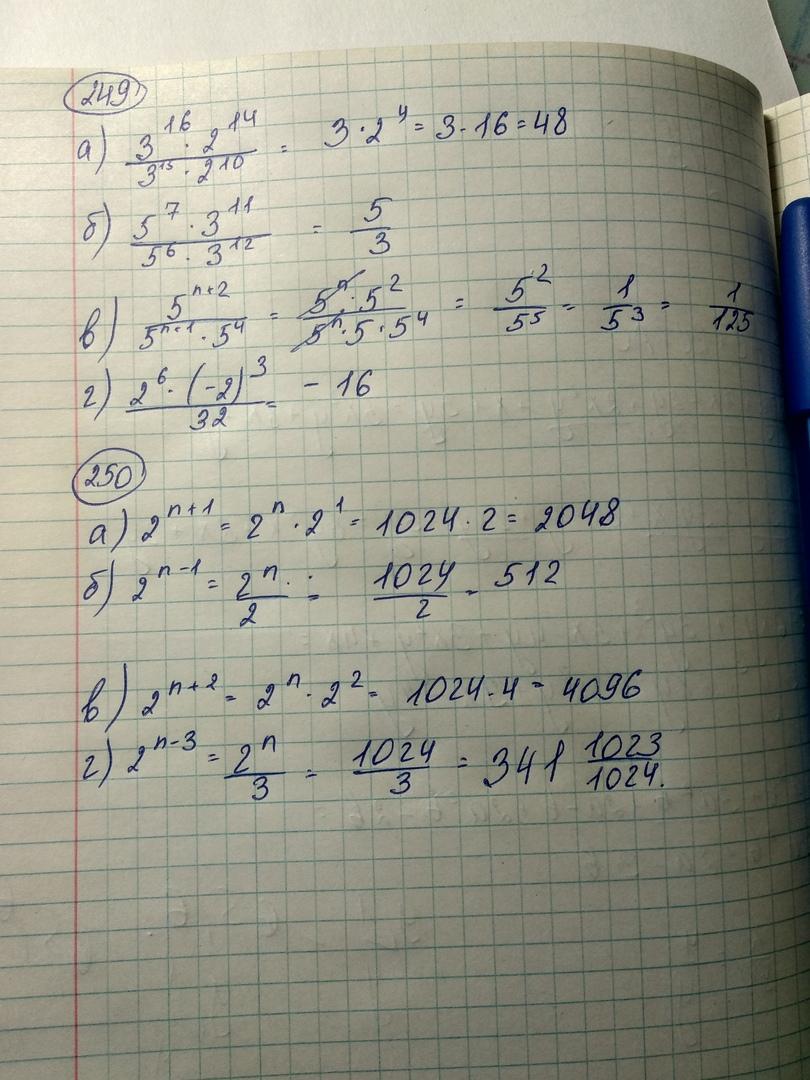 249
а) 3^16 · 2^14 / 3^15 · 2^10 = 3 · 2^4 = 3 · 16 = 48
б) 5^7 · 3^11 / 5^6 · 3^12 = 5/3
в) 5^(n+2) / 5^(n+1) · 5^4 = 5^n · 5^2 / 5^n · 5 · 5^4 = 5^2 / 5^5 = 1 / 5^3 = 1/125
г) 2^6 · (-2)^3 / 32 = - 16
250
а) 2^(n+1) = 2^n · 2^1 = 1024 · 2 = 2048
б) 2^(n-1) = 2^n / 2 = 1024 / 2 = 512
в) 2^(n+2) = 2^n · 2^2 = 1024 · 4 = 4096
г) 2^(n-3) = 2^n / 3 = 1024 / 3 = 341 1023/1024.